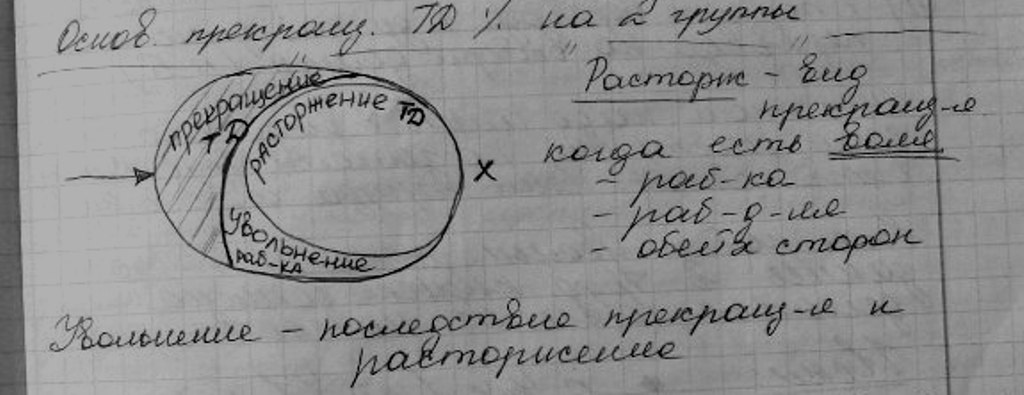 Основ. прекращ. ТД /. на 2 группы
прекращение
ТД
расторжение ТД
Увольнение
раб-ка
х
Расторж - вид
прекращ-я
когда есть воля
- раб-ка
- раб-д-ля
- обеих сторон
Увольнение - последствие прекращ-я и
расторжение